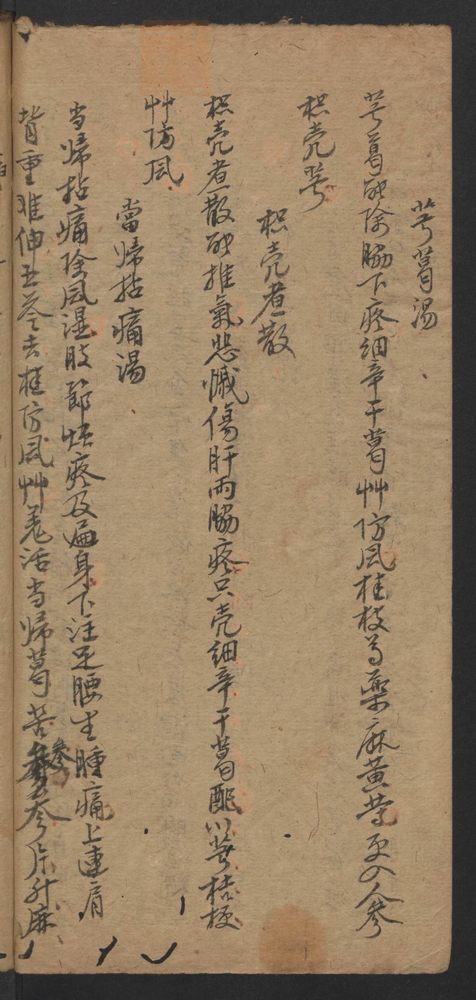 芎葛湯
芎葛能除脇下疼細辛干葛艸防風桂枝芍藥麻黄芎更入人參
枳壳芎
枳壳煮散
枳壳煮散能推氣悲慽傷肝両脇疼只壳細辛干葛配以芎桔梗
艸防風
當帰拈痛湯
当帰拈痛除風湿肢節煩疼及遍身下注足腰生腫痛上連肩
背重难伸五苓去桂防風艸羌活当帰葛苦參芩朮升麻